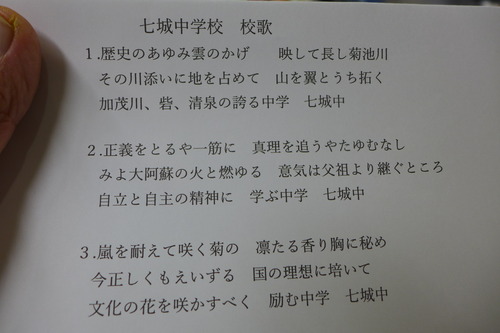 七城中学校　校歌
１.歴史のあゆみ雲のかげ　　映して長し菊池川
その川添いに地を占めて　山を翼とうち拓く
加茂川、砦、清泉の誇る中学　七城中
２.正義をとるや一筋に　真理を追うやたゆむなし
みよ大阿蘇の火と燃ゆる　意気は父祖より継ぐところ
自立と自主の精神に　学ぶ中学　七城中
３.嵐を耐えて咲く菊の　凛たる香り胸に秘め
今正しくもえいずる　国の理想に培いて
文化の花を咲かすべく　励む中学　七城中